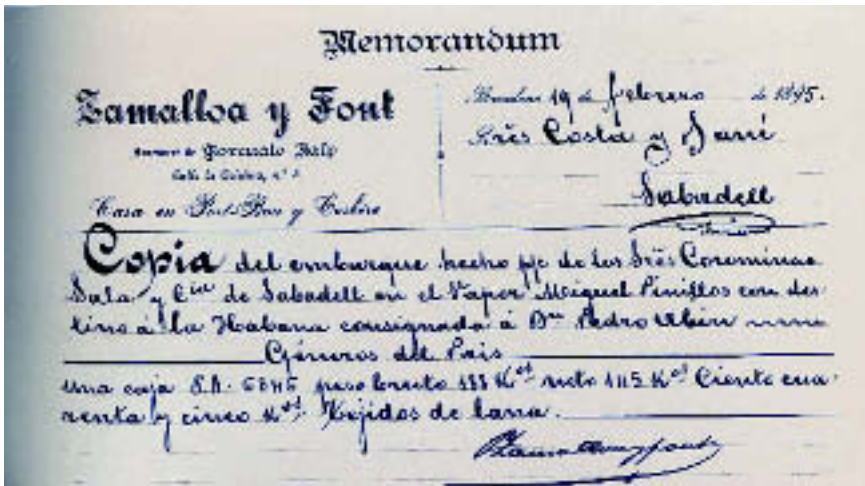 Memorandum
Zamalloa y Font
Sucesor de Gorgonio Balp
Casa en Port-Bou y Cerbère
19 de febrero de 1895.
Srẽs Costa y Jarré
Sabadell
Copia del embarque hecho p/c de los Srẽs Corominas
Sala y Cia de Sabadell en el Vapor Miguel Pinillos con des-
tino á la Habana consignada á Dn Pedro
Géneros del Pais
una caja peso bruto Kos neto 145 Kos Ciento cua-
renta y cinco Kos Tejidos de lana.
Zamalloa y font